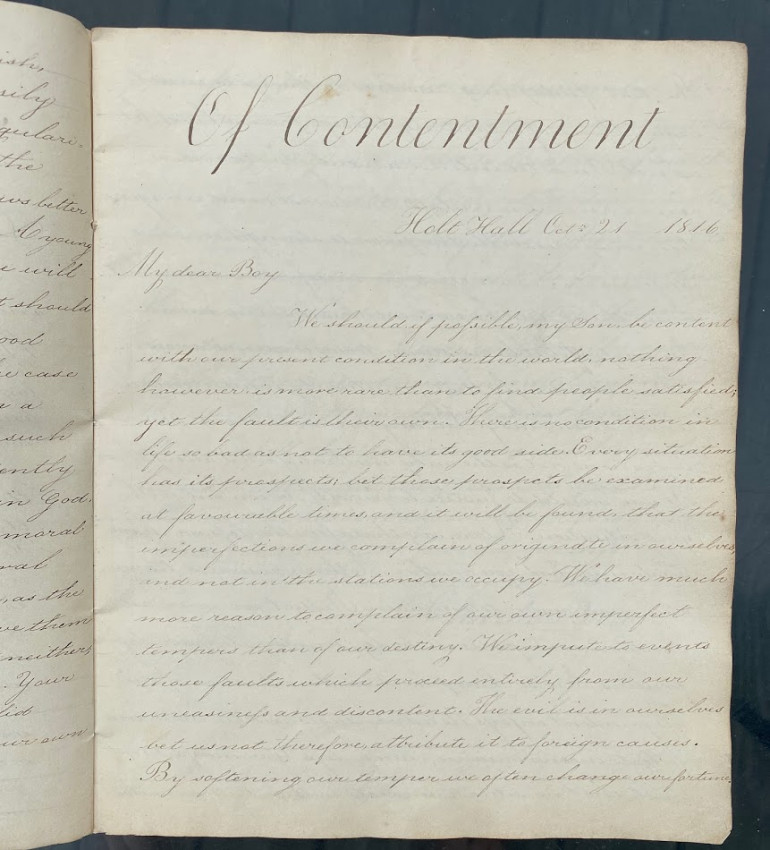 ish,
sily
gulari-
the
ws better
A young
u will
t should
ood
he case
n a
such
ently
in God.
moral
ral
, as the
ve them
neither
. Your
lid
ur own
Of Contentment
Holt Hall Octr 21 1816
My dear Boy
We should if possible, my Son, be content
with our present condition in the world, nothing
however is more rare than to find people satisfied;
yet the fault is their own. There is no condition in
life so bad as not to have its good side. Every situation
has its prospects; let those prospects be examined
at favourable times, and it will be found, that the
imperfections we complain of originate in ourselves
and not in the stations we occupy. We have much
more reason to complain of our own imperfect
tempers than of our destiny. We impute to events
those faults which proceed entirely from our
uneasiness and discontent. The evil is in ourselves
let us not therefore, attribute it to foreign causes.
By softening our temper we often change our fortune,